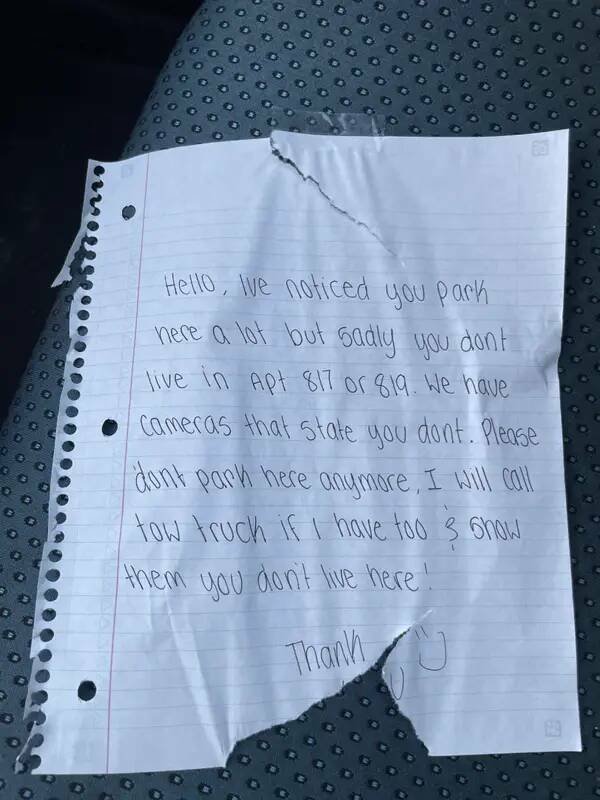 Hello, Ive noticed you park
here a lot but sadly you dont
live in Apt 817 or 819. We have
cameras that state you dont. Please
dont park here anymore, I will call
tow truck if I have too & show
them you don't live here!
Thank
U